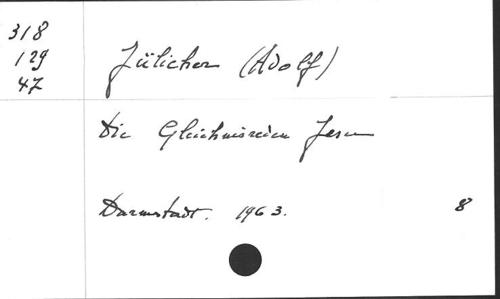 318
129
47
Jülicher (Adolf)
Die Gleichnisreden Jesu
Darmstadt. 1963. 8